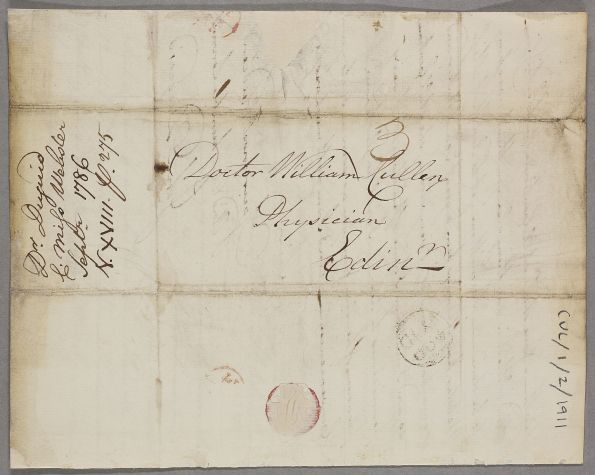 Doctor William Cullen
Physician
Edinr
Dr. Duguid
C. Miss Webster
Septr. 1786
N. XVIII. p. 275
CUL/1/2/1911